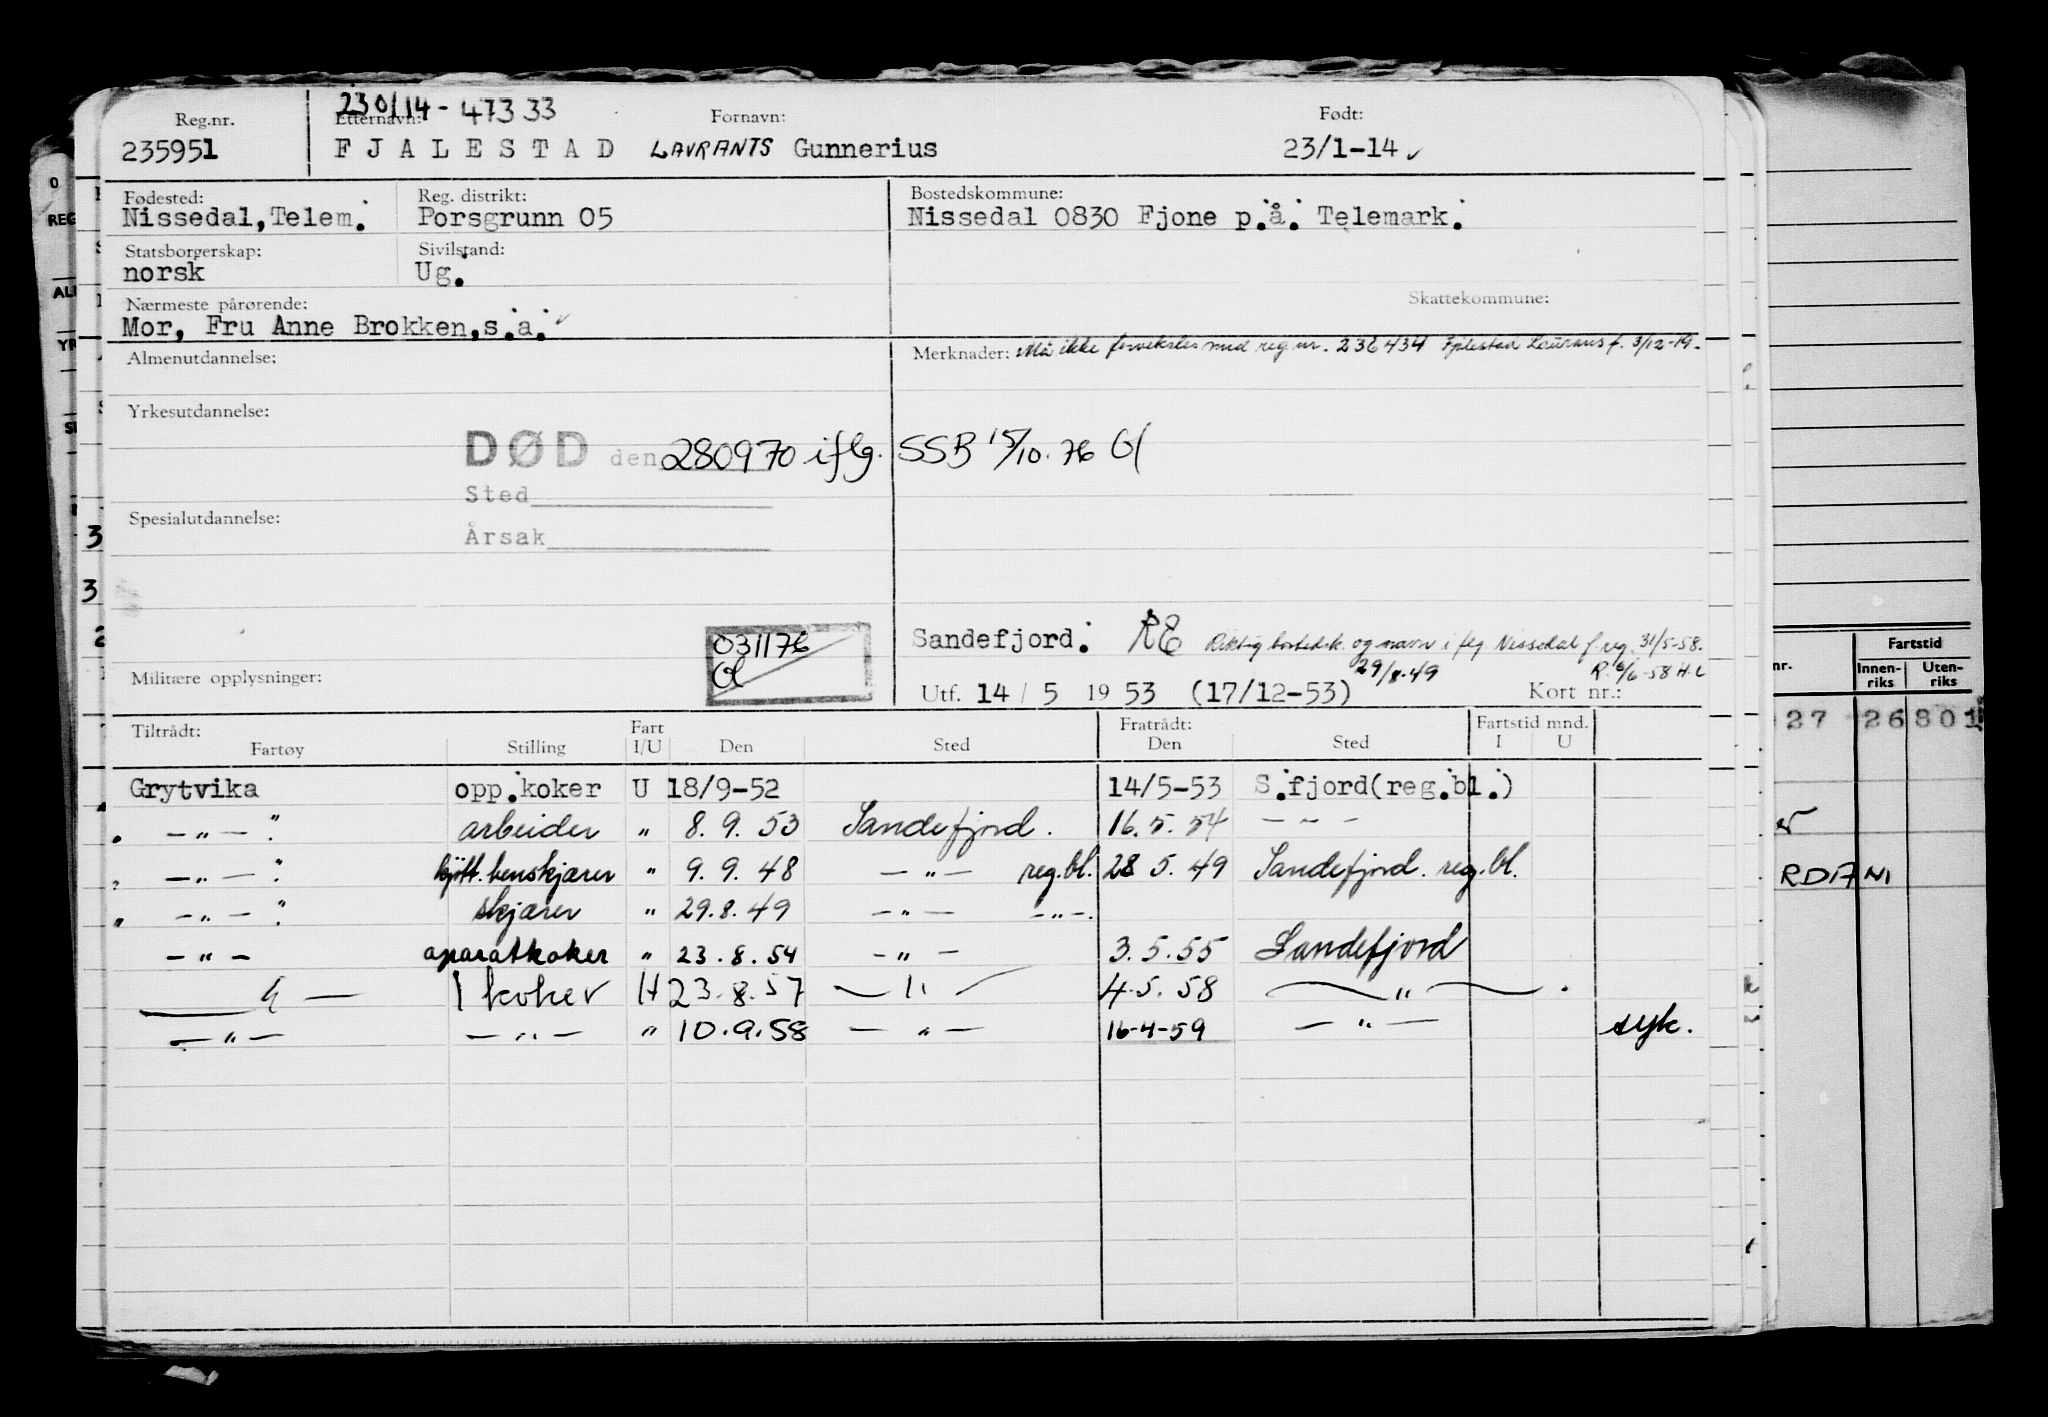 230114-47333
Reg.nr. Etternavn: Fornavn: Født:
235951 FJALESTAD LAVRANTS Gunnerius 23/1-14 ✓
Fødested: Reg. distrikt: Bostedskommune:
Nissedal,Telem. Porsgrunn 05 Nissedal 0830 Fjone p.å. Telemark.
Statsborgerskap: Sivilstand:
norsk Ug.
Nærmeste pårørende: Skattekommune:
Mor, Fru Anne Brokken,s.a.
Almenutdannelse: Merknader: Må ikke forveksles med reg nr. 236434 Fjalestad Laurans f. 3/12-19.
Yrkesutdannelse:
DØD den 280970 iflg. SSB 15/10.76 Gl
Sted
Spesialutdannelse:
Årsak
031176
Gl
Sandefjord. RE Riktig bostedsk. og navn i flg Nissedal f reg. 31/5-58.
29/8-49 R. 6/6-58 H.L
Militære opplysninger: Utf. 14 / 5 19 53 (17/12-53) Kort nr.:
Tiltrådt: Fart Fratrådt: Fartstid mnd.
Fartøy Stilling I/U Den Sted Den Sted I U
Grytvika opp.koker U 18/9-52 14/5-53 S.fjord(reg.bl.)
— " — " arbeider " 8. 9. 53 Sandefjord. 16. 5. 54 — " —
— " — " kjøtt.benskjærer " 9. 9. 48 — " — reg.bl. 28 5. 49 Sandefjord. reg.bl.
— " — " skjærer " 29. 8. 49 — " — — " —.
— " — aparatkoker " 23. 8. 54 — " — 3. 5. 55 Sandefjord
— " — koker H 23. 8. 57 — " — 4. 5. 58 — " — .
— " — — " — " 10. 9. 58 — " — 16-4-59 — " — syk.
O
REG
ALI
YR
3
3
2
Fartstid
nr. Innen-riks Uten-riks
27 26801
RDIANI